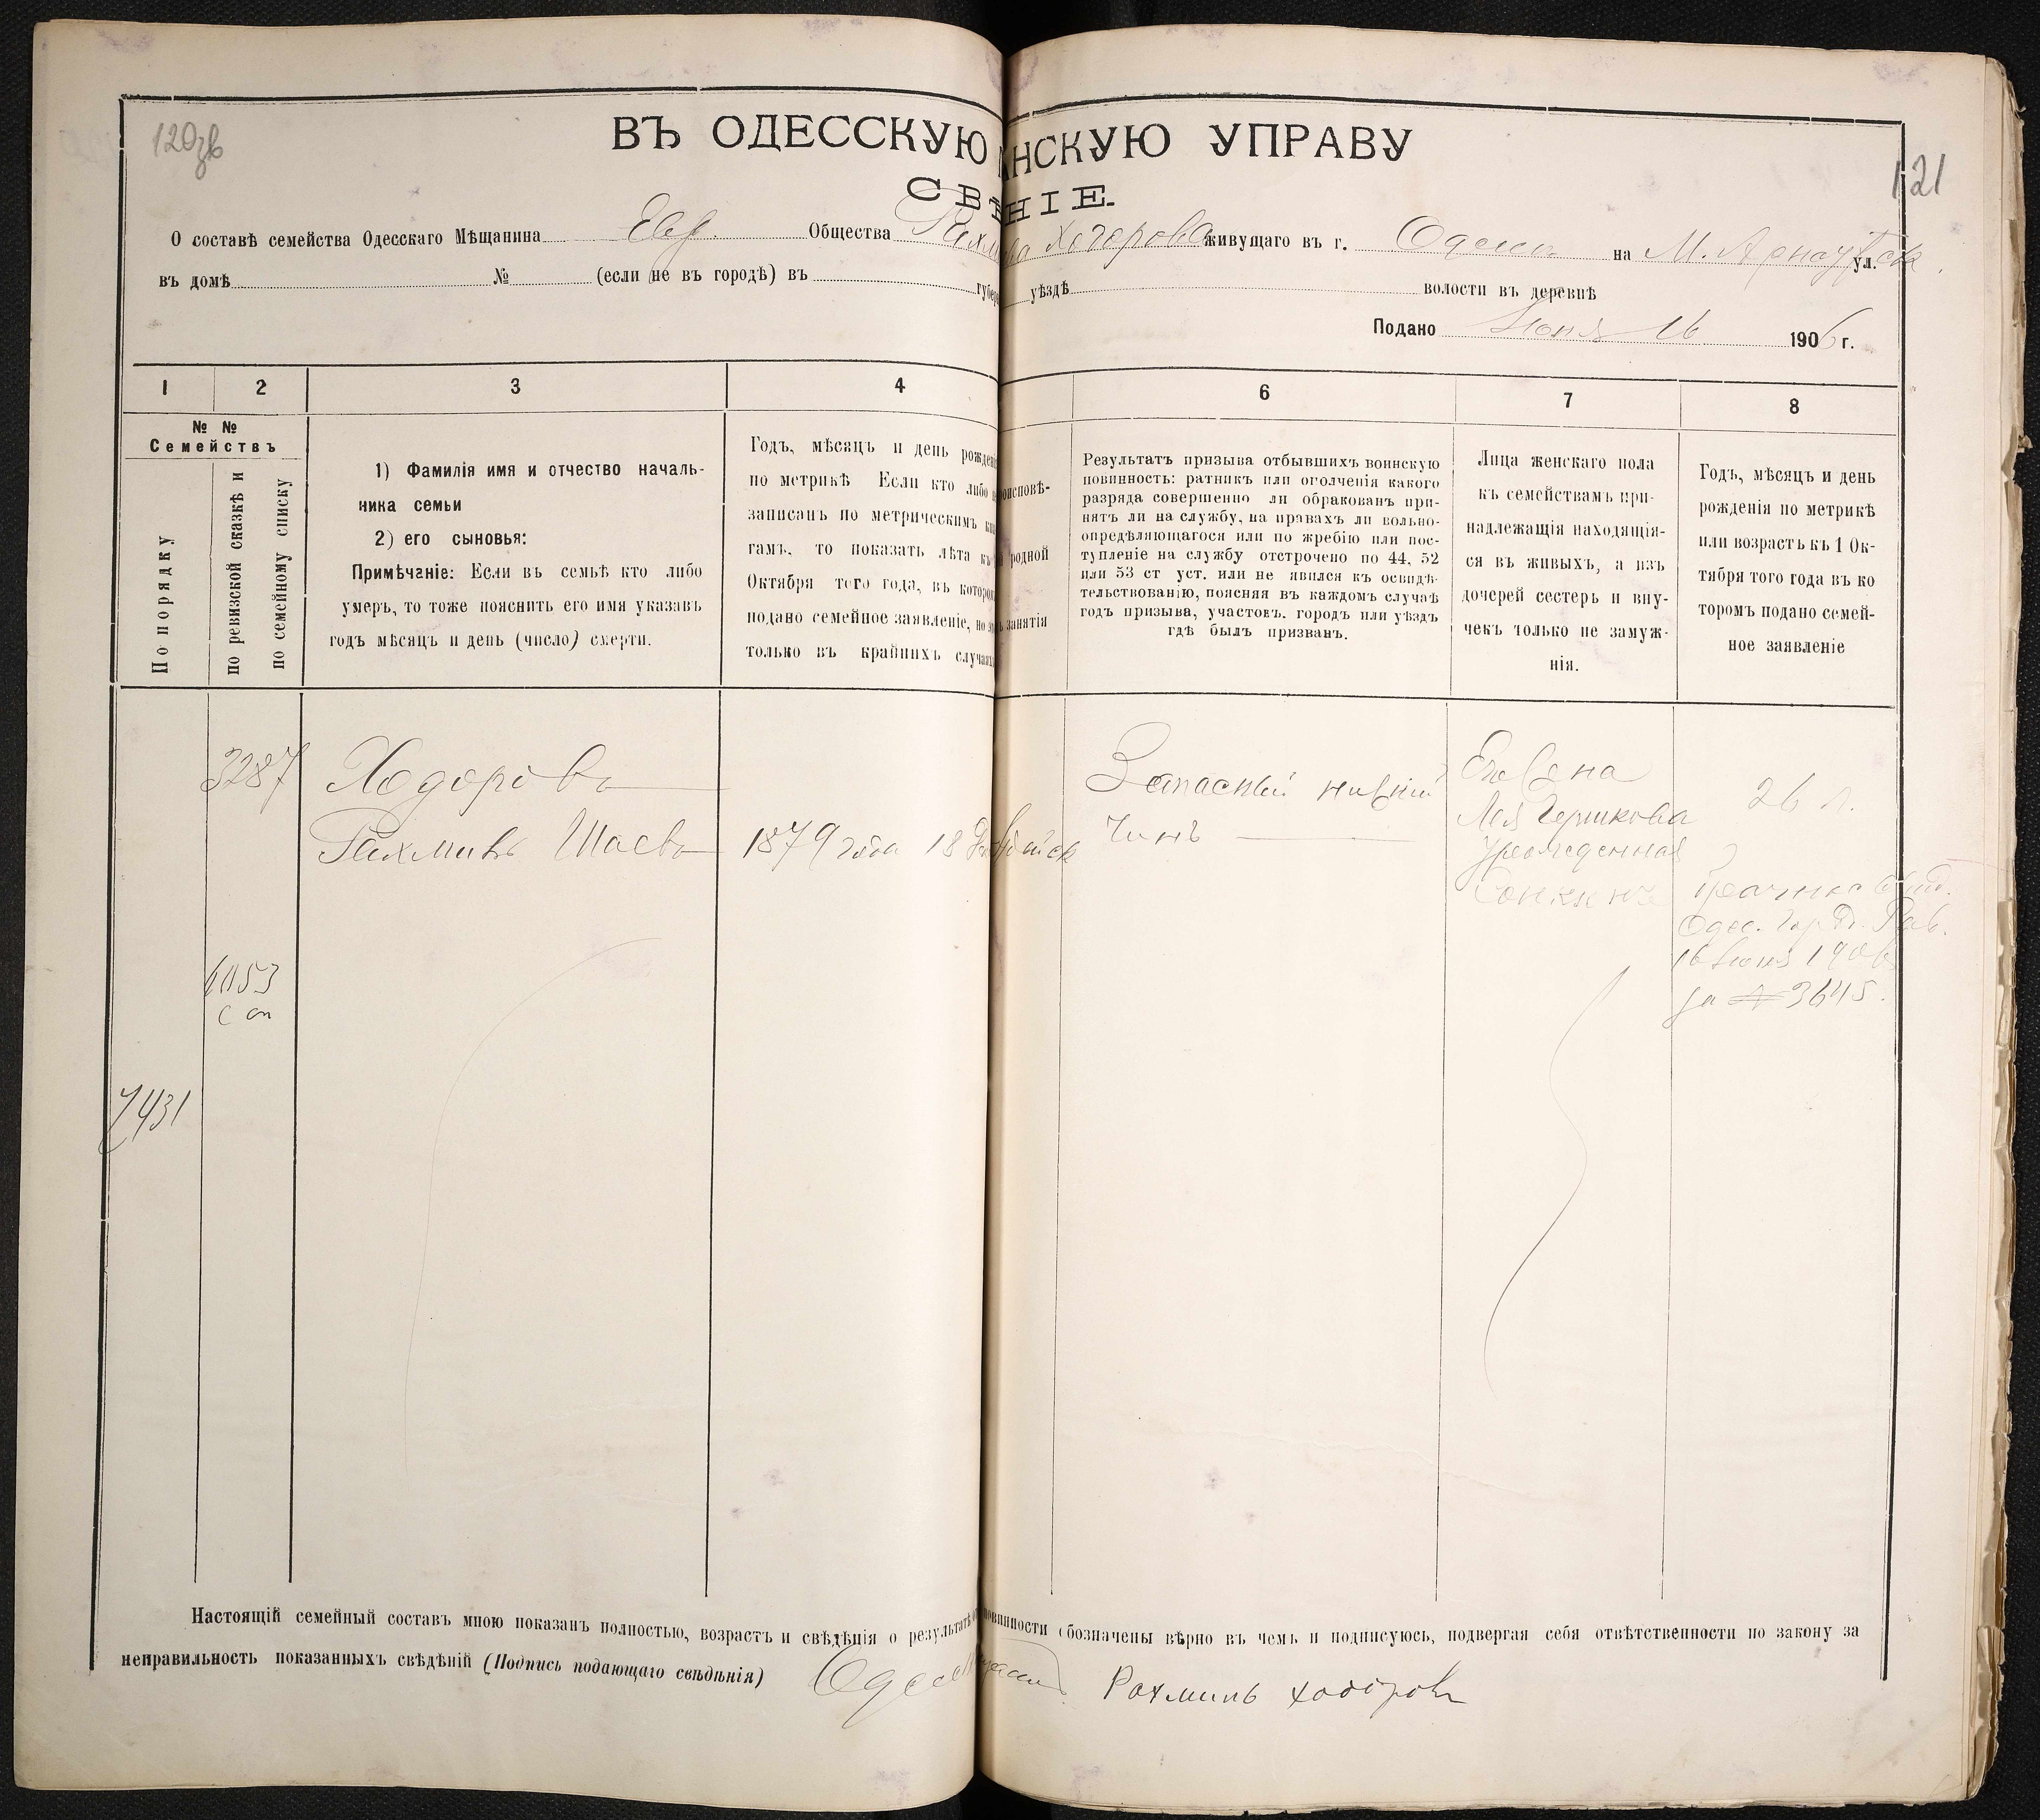 120зв
121
ВЪ ОДЕССКУЮ НСКУЮ УПРАВУ
СВѢНІЕ.
О составѣ семейства Одесскаго Мѣщанина Евр. Общества Рахмила Ходорова живущаго въ г. Одессѣ на М. Арнаутск. ул.
въ домѣ № (если не въ городѣ) въ губер уѣздѣ волости въ деревнѣ
Подано Іюня 16 1906 г.
1 2 3 4 6 7 8
№ №
Семействъ
По порядку
по ревизской сказкѣ и
по семейному списку
1) Фамилія имя и отчество началь-
ника семьи
2) его сыновья:
Примѣчаніе: Если въ семьѣ кто либо
умеръ, то тоже пояснить его имя указавъ
годъ мѣсяцъ и день (число) смерти.
Годъ, мѣсяцъ и день рожденi
по метрикѣ Если кто либо
записанъ по метрическимъ кни
гамъ, то показать лѣта къ
Октября того года, въ которо
подано семейное заявленіе, но
только въ крайнихъ случаях
оисповѣ-
родной
занятія
Результатъ призыва отбывшихъ воинскую
повинность: ратникъ или ополченія какого
разряда совершенно ли обракованъ при-
нятъ ли на службу, на правахъ ли вольно-
опредѣляющагося или по жребію или пос-
тупленіе на службу отстрочено по 44, 52
или 53 ст уст. или не явился къ освидѣ-
тельствованію, поясняя въ каждомъ случаѣ
годъ призыва, участовъ. городъ или уѣздъ
гдѣ былъ призванъ.
Лица женскаго пола
къ семействамъ при-
надлежащія находящія-
ся въ живыхъ, а изъ
дочерей сестеръ и вну-
чекъ только не замуж-
нія.
Годъ, мѣсяцъ и день
рожденія по метрикѣ
или возрастъ къ 1 Ок-
тября того года въ ко
торомъ подано семей-
ное заявленіе
3287 Ходоровъ
Рахмиль Шаевъ 1879 года 18
Запасный нижній
чинъ
Его жена
Лея Гершкова
урожденная
26 л.
Брачное свид.
Одес. Гор. Рав.
16 Іюня 1906
за № 3645.
6053
7431
Настоящій семейный составъ мною показанъ полностью, возрастъ и свѣдѣнія о результатѣ повинности обозначены вѣрно въ чемъ и подписуюсь, подвергая себя отвѣтственности по закону за
неправильность показанныхъ свѣдѣній (Подпись подающаго свѣдѣнія) Рахмиль Ходоровъ